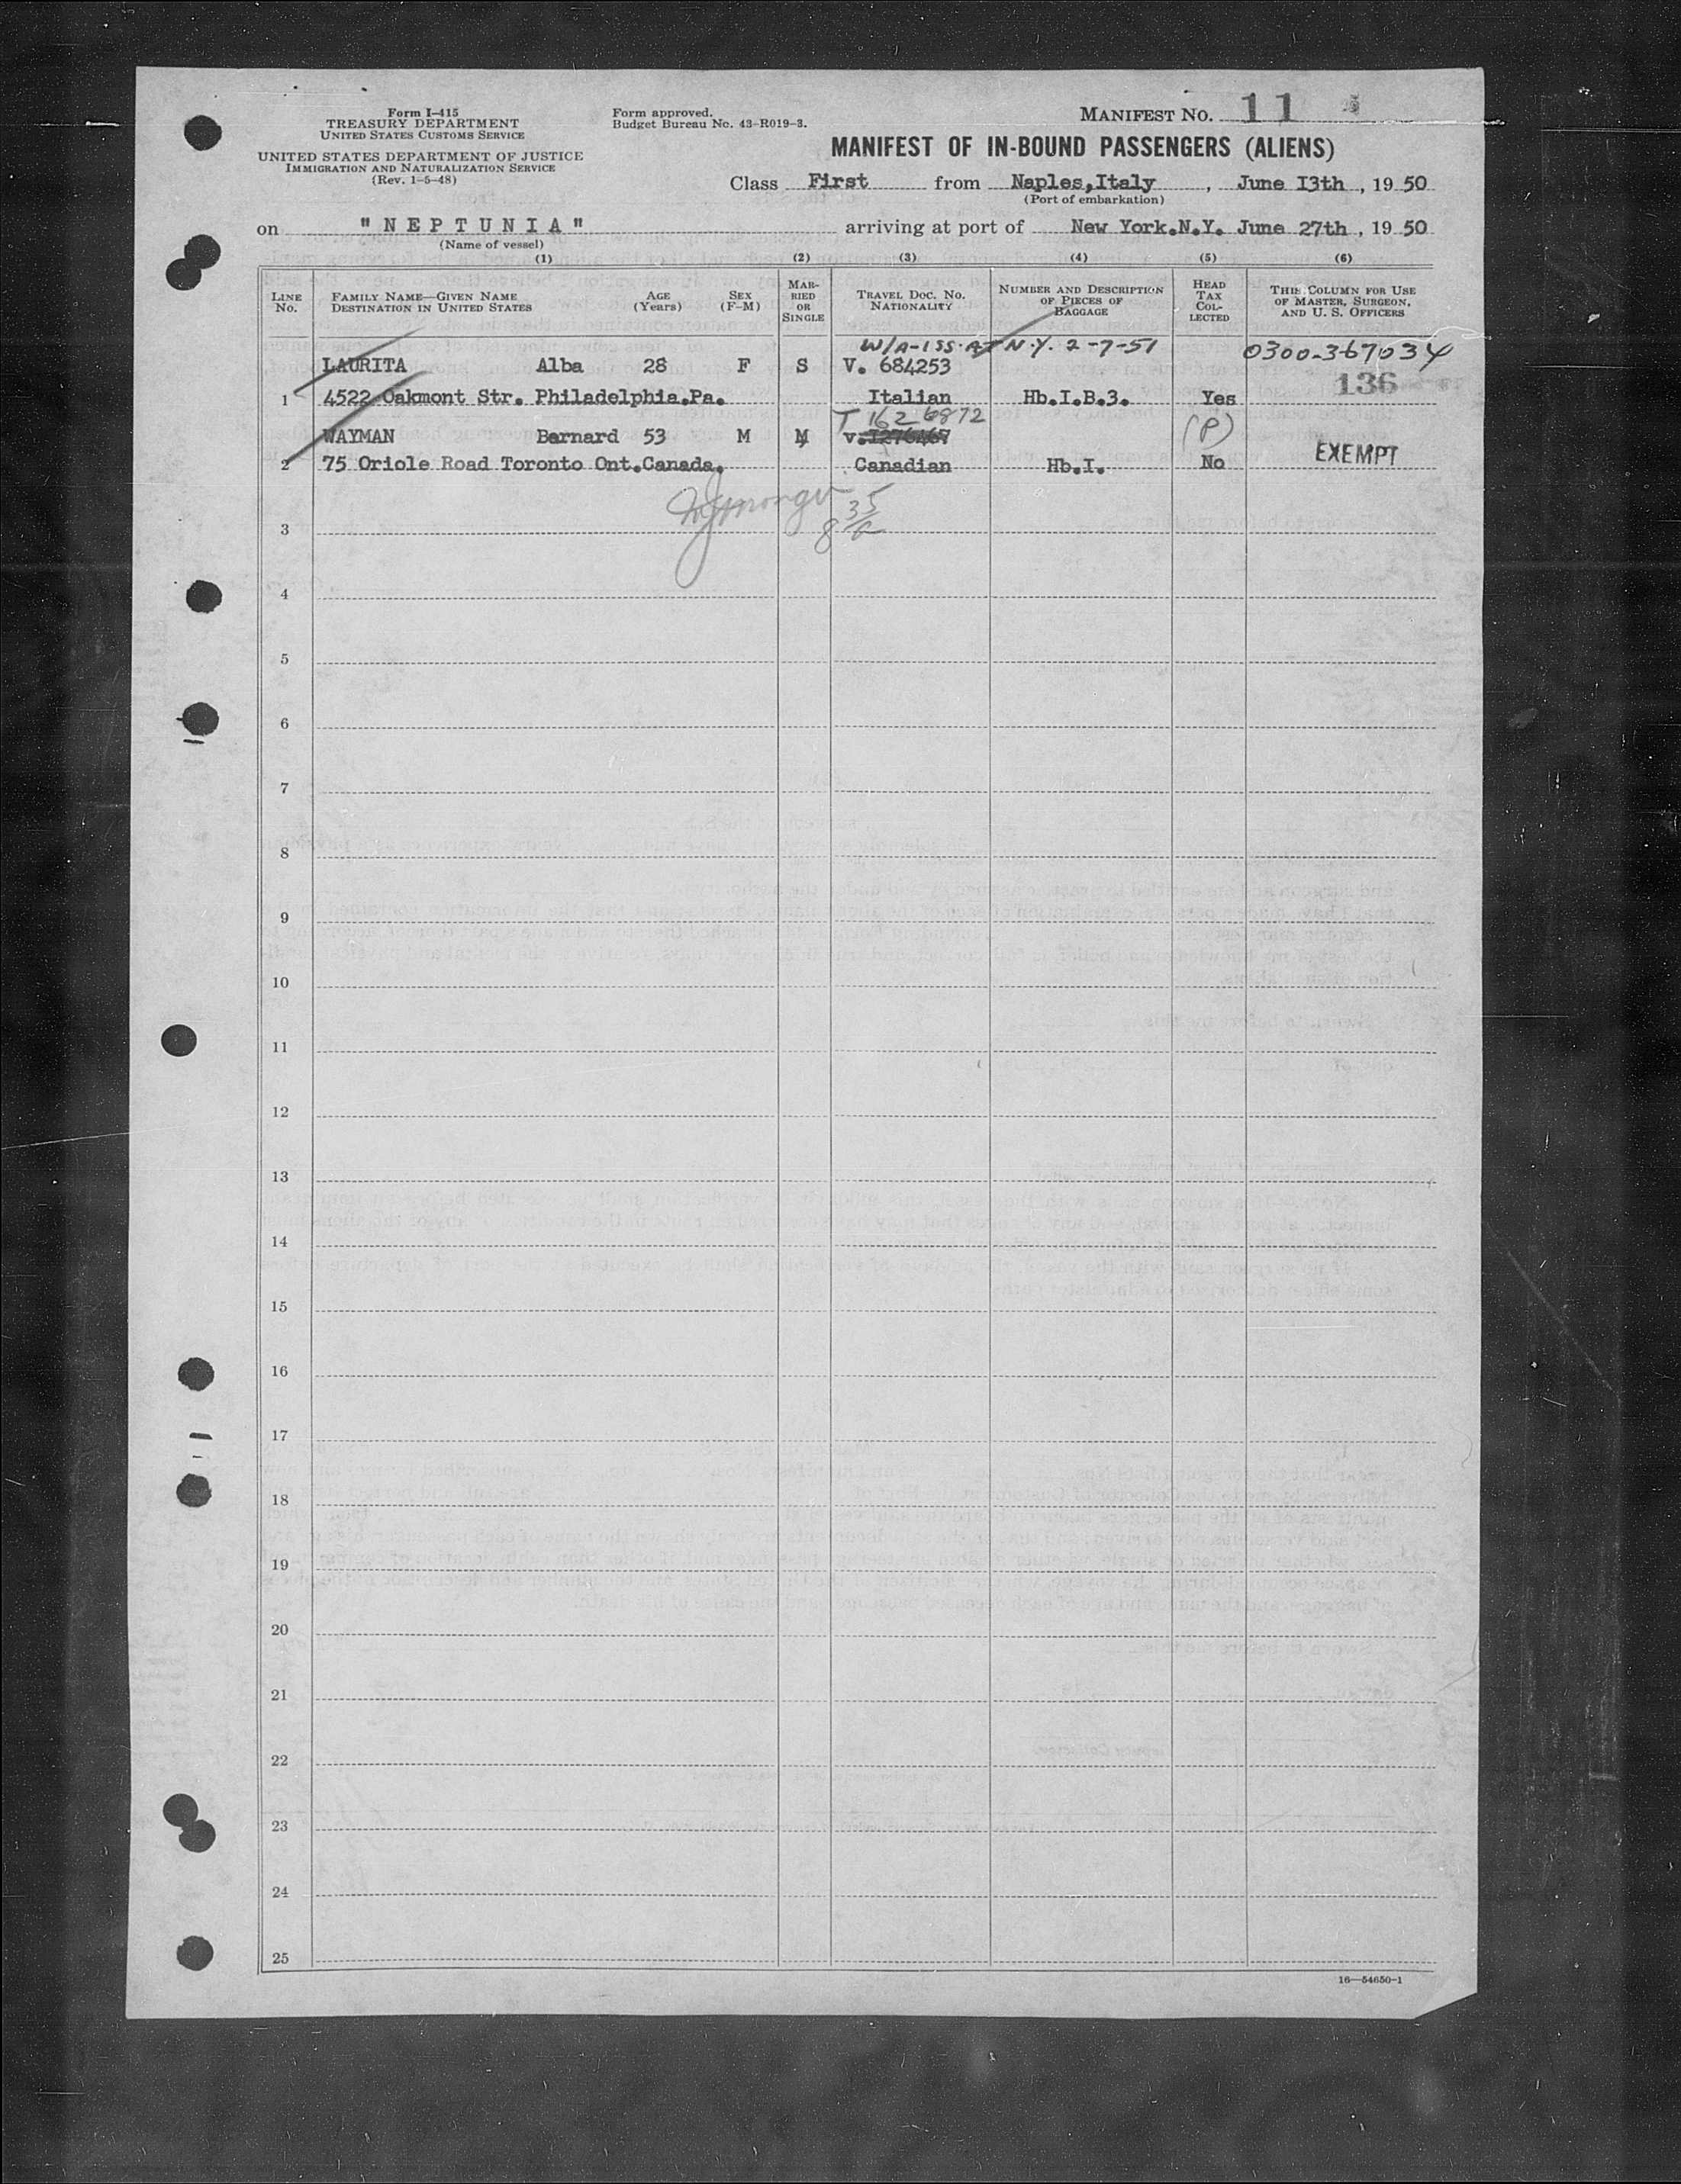 Form I-415
TREASURY DEPARTMENT
UNITED STATES CUSTOMS SERVICE
UNITED STATES DEPARTMENT OF JUSTICE
IMMIGRATION AND NATURALIZATION SERVICE
(Rev. 1-5-48)
Form approved.
Budget Bureau No. 43-R019-3.
MANIFEST NO. 11
MANIFEST OF IN-BOUND PASSENGERS (ALIENS)
Class First from Naples,Italy , June I3th , 19 50
(Port of embarkation)
on "NEPTUNIA" arriving at port of New York.N.Y. June 27th , 19 50
(Name of vessel)
(1) (2) (3) (4) (5) (6)
LINE No. FAMILY NAME—GIVEN NAME DESTINATION IN UNITED STATES AGE (Years) SEX (F-M) MARRIED OR SINGLE TRAVEL DOC. NO. NATIONALITY NUMBER AND DESCRIPTION OF PIECES OF BAGGAGE HEAD TAX COLLECTED THIS COLUMN FOR USE OF MASTER, SURGEON, AND U. S. OFFICERS
W/A-ISS. AT N.Y. 2-7-51 0300-367034
LAURITA Alba 28 F S V. 684253
136
1 4522 Oakmont Str. Philadelphia.Pa. Italian Hb.I.B.3. Yes
T 1626872
WAYMAN Barnard 53 M M v. (P)
EXEMPT
2 75 Oriole Road Toronto Ont.Canada. Canadian Hb.I. No
8 35
3
4
5
6
7
8
9
10
11
12
13
14
15
16
17
18
19
20
21
22
23
24
25
16—54650-1